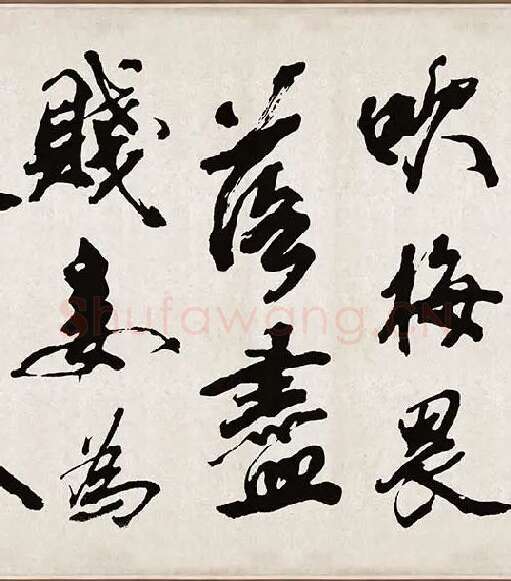 吹梅畏
落盡
賤妾為
Shufawang.CN